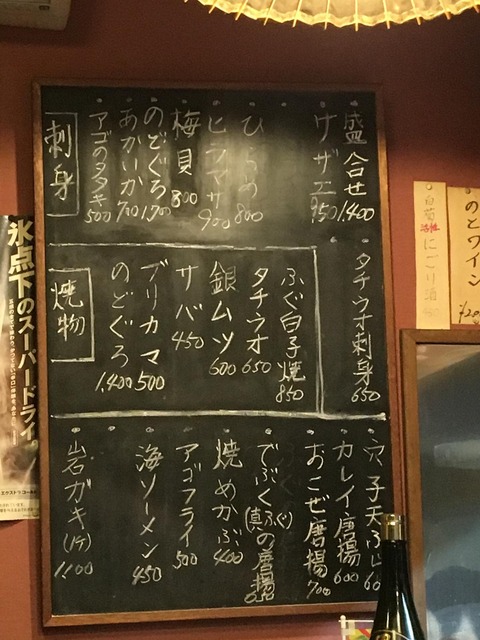 刺身
盛合せ 1,400
サザエ 950
ひらめ 800
ヒラマサ 900
梅貝 800
のどぐろ 1,700
あかいか 700
アゴのタタキ 500
タチウオ刺身 650
焼物
ふぐ白子焼 850
タチウオ 650
銀ムツ 600
サバ 450
ブリカマ 500
のどぐろ 1,400
穴子天ぷら 60
カレイ唐揚 600
おこぜ唐揚 700
でぶくふぐ(真)の唐揚
焼めかぶ 400
アゴフライ 500
海ソーメン 450
岩ガキ(1ケ) 1,100
のとワイン
白菊
活性
にごり酒
氷点下のスーパードライ。